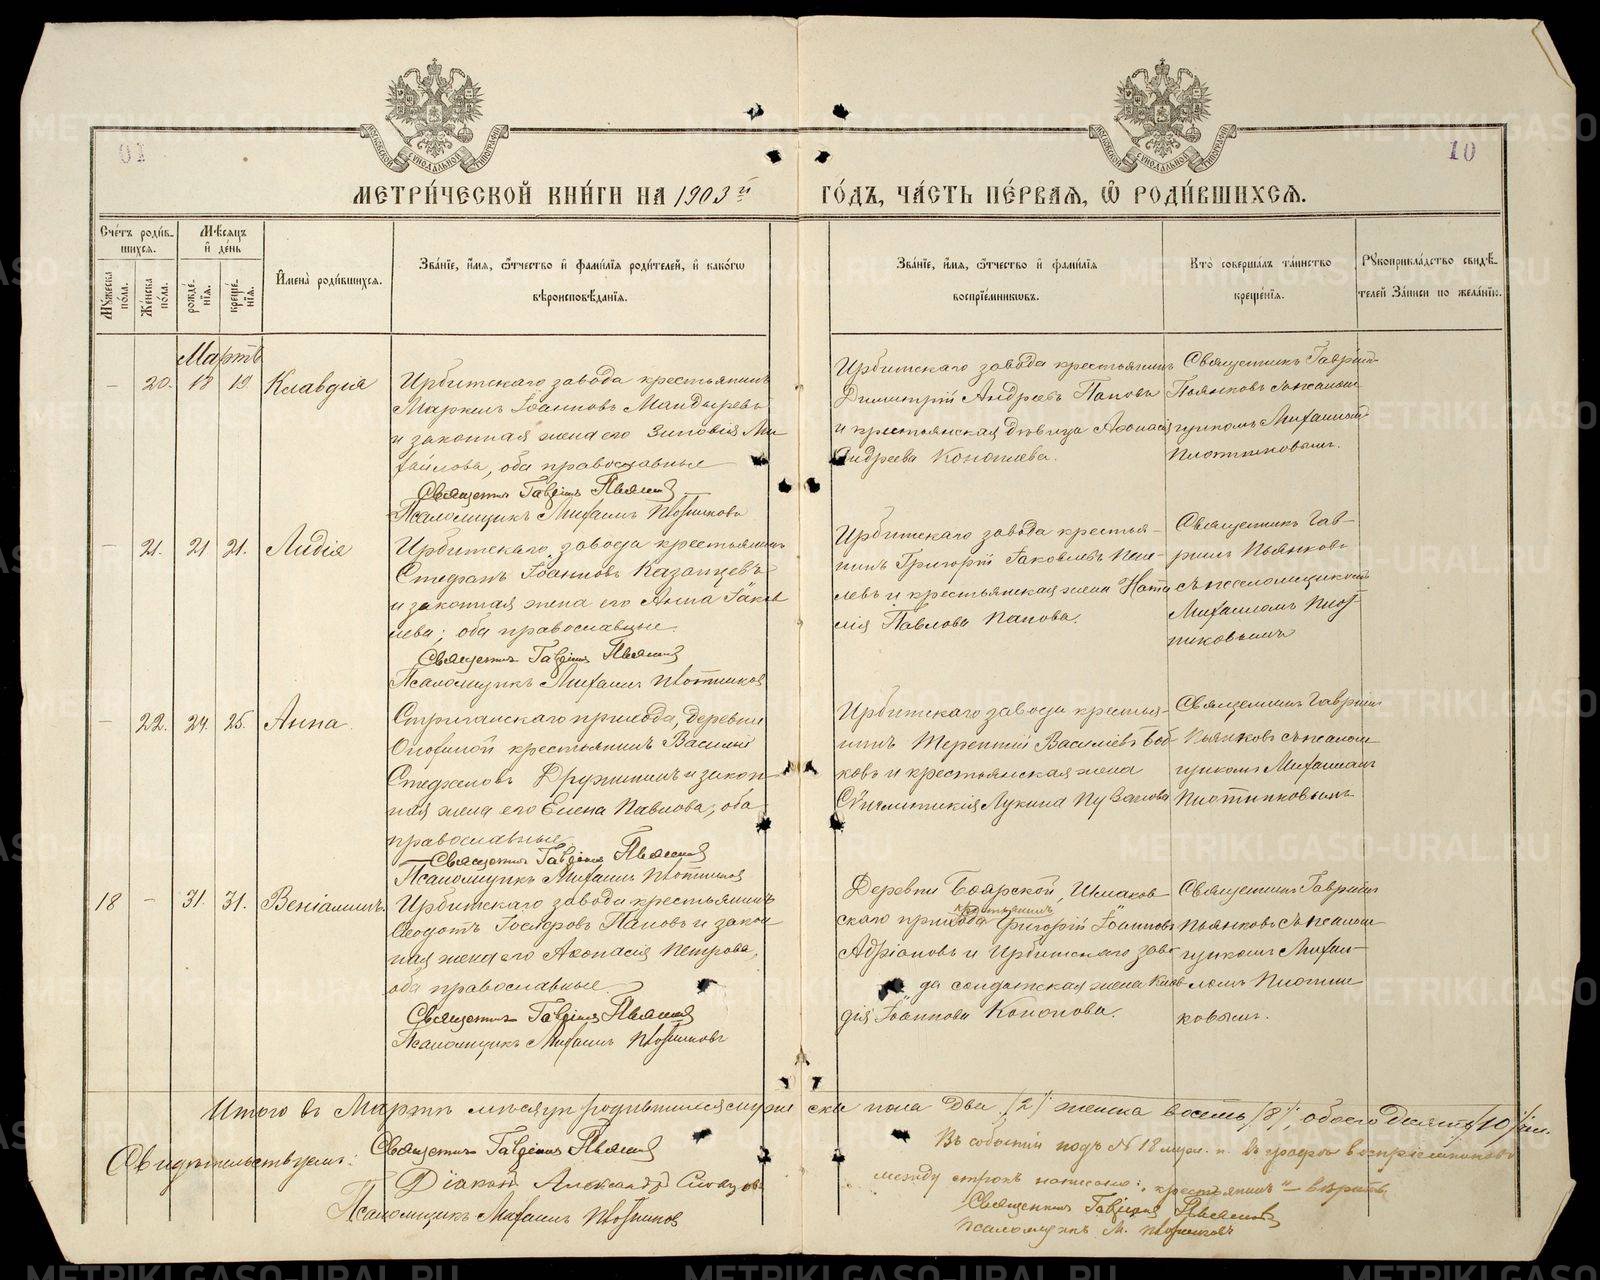 01
10
МЕТРИ́ЧЕСКОЙ КНИ́ГИ НА 1903й ГО́ДЪ, ЧА́СТЬ ПЕ́РВАѦ, Ѡ҆ РОДИ́ВШИХСѦ.
Сче́тъ роди́в-
шихся.
Му́жеска по́ла.
Же́нска по́ла.
Мѣ́сяцъ
и҆ де́нь
рожде́-
нїя.
креще́-
нїя.
И҆мена̀ роди́вшихся.
Зва́нїе, и҆́мя, ѻ҆́тчество и҆ фами́лїя роди́телей, и҆ како́гѡ
вѣроисповѣ́данїя.
Зва́нїе, и҆́мя, ѻ҆́тчество и҆ фами́лїя
воспрїе́мниковъ.
Кто̀ соверша́лъ та́инство
креще́нїя.
Рꙋкоприкла́дство свидѣ́-
телей за́писи по жела́нїю.
Мартъ
— 20. 18 19 Клавдія
Ирбитскаго завода крестьянинъ
Маркелъ Іоанновъ Мандыревъ
и законная жена его Зиновія Ми-
хайлова, оба православные
Священникъ Гавріилъ Пьянков
Псаломщикъ Михаилъ Плотниковъ
Ирбитскаго завода крестьянинъ
Димитрій Андреевъ Поповъ
и крестьянская дѣвица Афонасія
Андреева Коношева.
Священникъ Гавріилъ
Пьянковъ съ псалом-
щикомъ Михаиломъ
Плотниковымъ.
— 21. 21 21. Лидія
Ирбитскаго завода крестьянинъ
Стефанъ Іоанновъ Казанцевъ
и законная жена его Анна Іаков-
лева; оба православные.
Священникъ Гавріилъ Пьянков
Псаломщикъ Михаилъ Плотников
Ирбитскаго завода крестья-
нинъ Григорій Іаковлевъ
левъ и крестьянская жена Ната-
лія Павлова Попова.
Священникъ Гав-
ріилъ Пьянковъ
съ псаломщикомъ
Михаиломъ Плот-
никовымъ
— 22. 24. 25. Анна
Стриганскаго прихода, деревни
крестьянинъ Василій
Стефановъ Дружининъ и закон-
ная жена его Елена Павлова, оба
православные
Священникъ Гавріилъ Пьянков
Псаломщикъ Михаилъ Плотников
Ирбитскаго завода крестья-
нинъ Терентій Василіевъ Боб-
ковъ и крестьянская жена
Лукина
Священникъ Гавріилъ
Пьянковъ съ псалом-
щикомъ Михаиломъ
Плотниковымъ
18 — 31. 31. Веніаминъ
Ирбитскаго завода крестьянинъ
Ѳеодотъ Іосифовъ Поповъ и закон-
ная жена его Афонасія Петрова,
оба православные.
Священникъ Гавріилъ Пьянков
Псаломщикъ Михаилъ Плотниковъ
Деревни Боярской, Шмаков-
крестьянинъ
скаго прихода Григорій Іоанновъ
Адріановъ и Ирбитскаго заво-
да солдатская жена Клав-
дія Іоаннова Кононова.
Священникъ Гавріилъ
Пьянковъ съ псалом-
щикомъ Михаи-
ломъ Плотни
ковымъ.
Итого въ Мартѣ мѣсяцѣ родившихся мужеска пола два /2/; женска восемь /8/; обоего десять /10/ чел.
Свидѣтельствуемъ: Священникъ Гавріилъ Пьянков
Діаконъ Александръ
Псаломщикъ Михаилъ Плотников
Въ событіи подъ № 18 муж. п. въ графѣ воспріемниковъ
между строкъ написано: „крестьянинъ" — вѣрить
Священникъ Гавріилъ Пьянков
Псаломщикъ М. Плотниковъ
METRIKI.GASO-URAL.RU